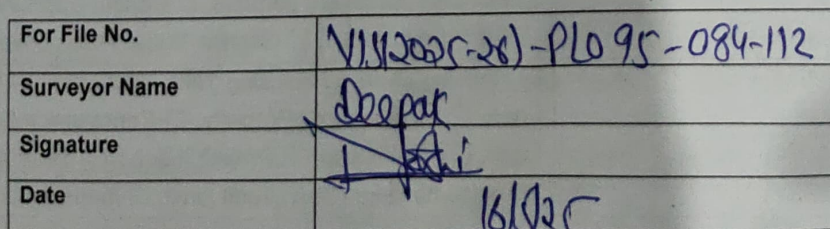 For File No. VIS(2025-26)-PL095-084-112
Surveyor Name Deepak
Signature
Date